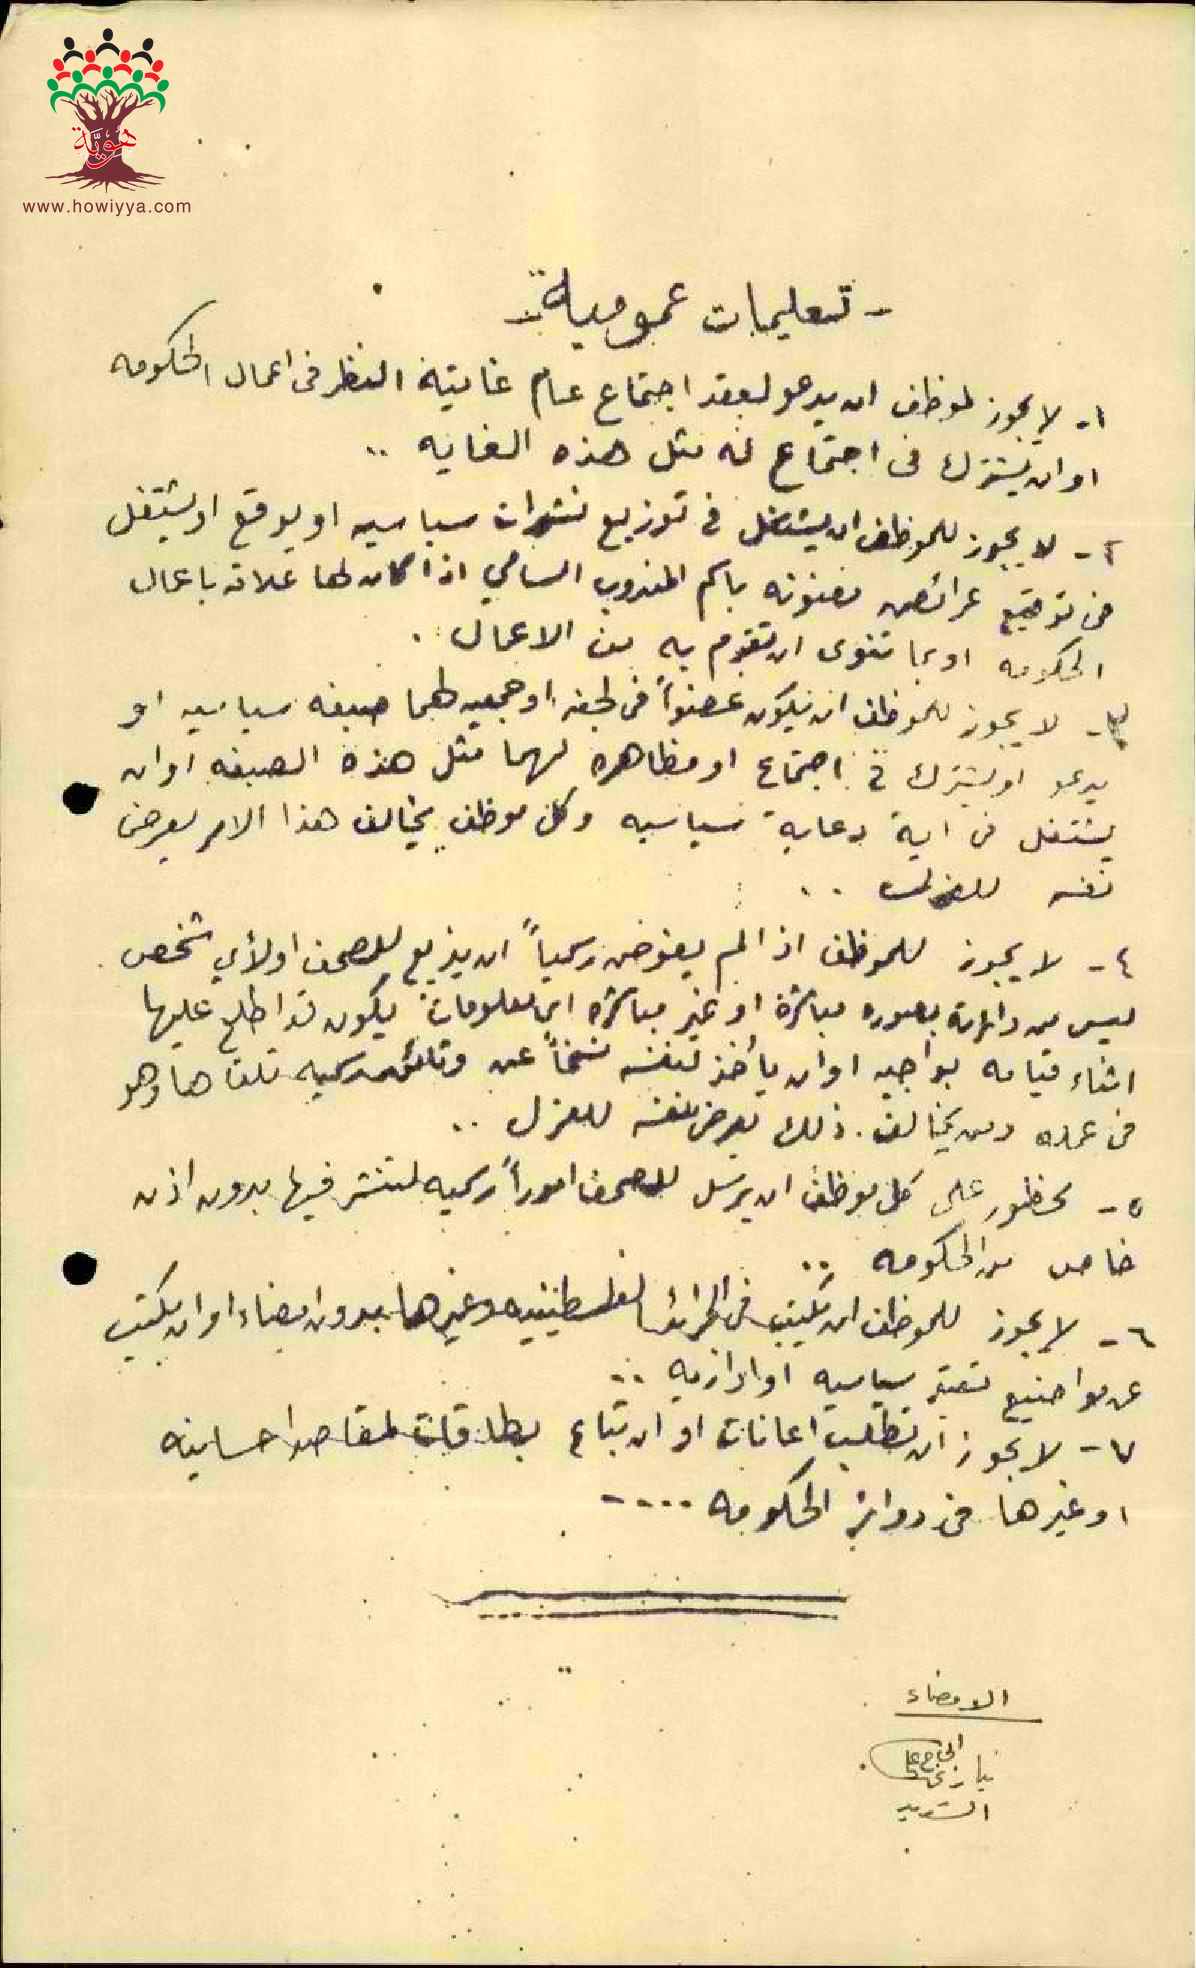 هوية
www.howiyya.com
- تعليمات عمومية -
١- لا يجوز لموظف ان يدعو لعقد اجتماع عام غايته النظر في اعمال الحكومه
او ان يشترك في اجتماع له مثل هذه الغايه ..
٢- لا يجوز للموظف ان يشتغل في توزيع نشرات سياسيه او يوقع او يشتغل
في توقيع عرائض معنونه باسم المندوب السامي اذا كان لها علاقه باعمال
الحكومه او بما تنوى ان تقوم به من الاعمال .
٣- لا يجوز للموظف ان يكون عضواً في لجنه او جمعيه لهما صبغه سياسيه او
يدعو او يشترك في اجتماع او مظاهره لهما مثل هذه الصبغه او ان
يشتغل في اية دعاية سياسيه وكل موظف يخالف هذا الامر يعرض
نفسه للعزل ..
٤- لا يجوز للموظف اذا لم يفوض رسمياً ان يذيع للصحف او لأي شخص
ليس من دائرته بصوره مباشرة او غير مباشره اي معلومات يكون قد اطلع عليها
اثناء قيامه بواجبه او ان يأخذ لنفسه نسخاً عن وثائق رسميه تلقاها وهو
في عمله ومن يخالف ذلك يعرض نفسه للعزل ..
٥- محظور على كل موظف ان يرسل للصحف اموراً رسميه لتنشر فيها بدون اذن
خاص من الحكومه ..
٦- لا يجوز للموظف ان يكتب في الجرائد الفلسطينيه وغيرها بدون امضاء او ان يكتب
عن مواضيع تعتبر سياسيه او اداريه ..
٧- لا يجوز ان تطلب اعانات او ان تباع بطاقات لمقاصد احسانيه
او غيرها في دوائر الحكومه ....
الامضاء
الحاج
نيازي